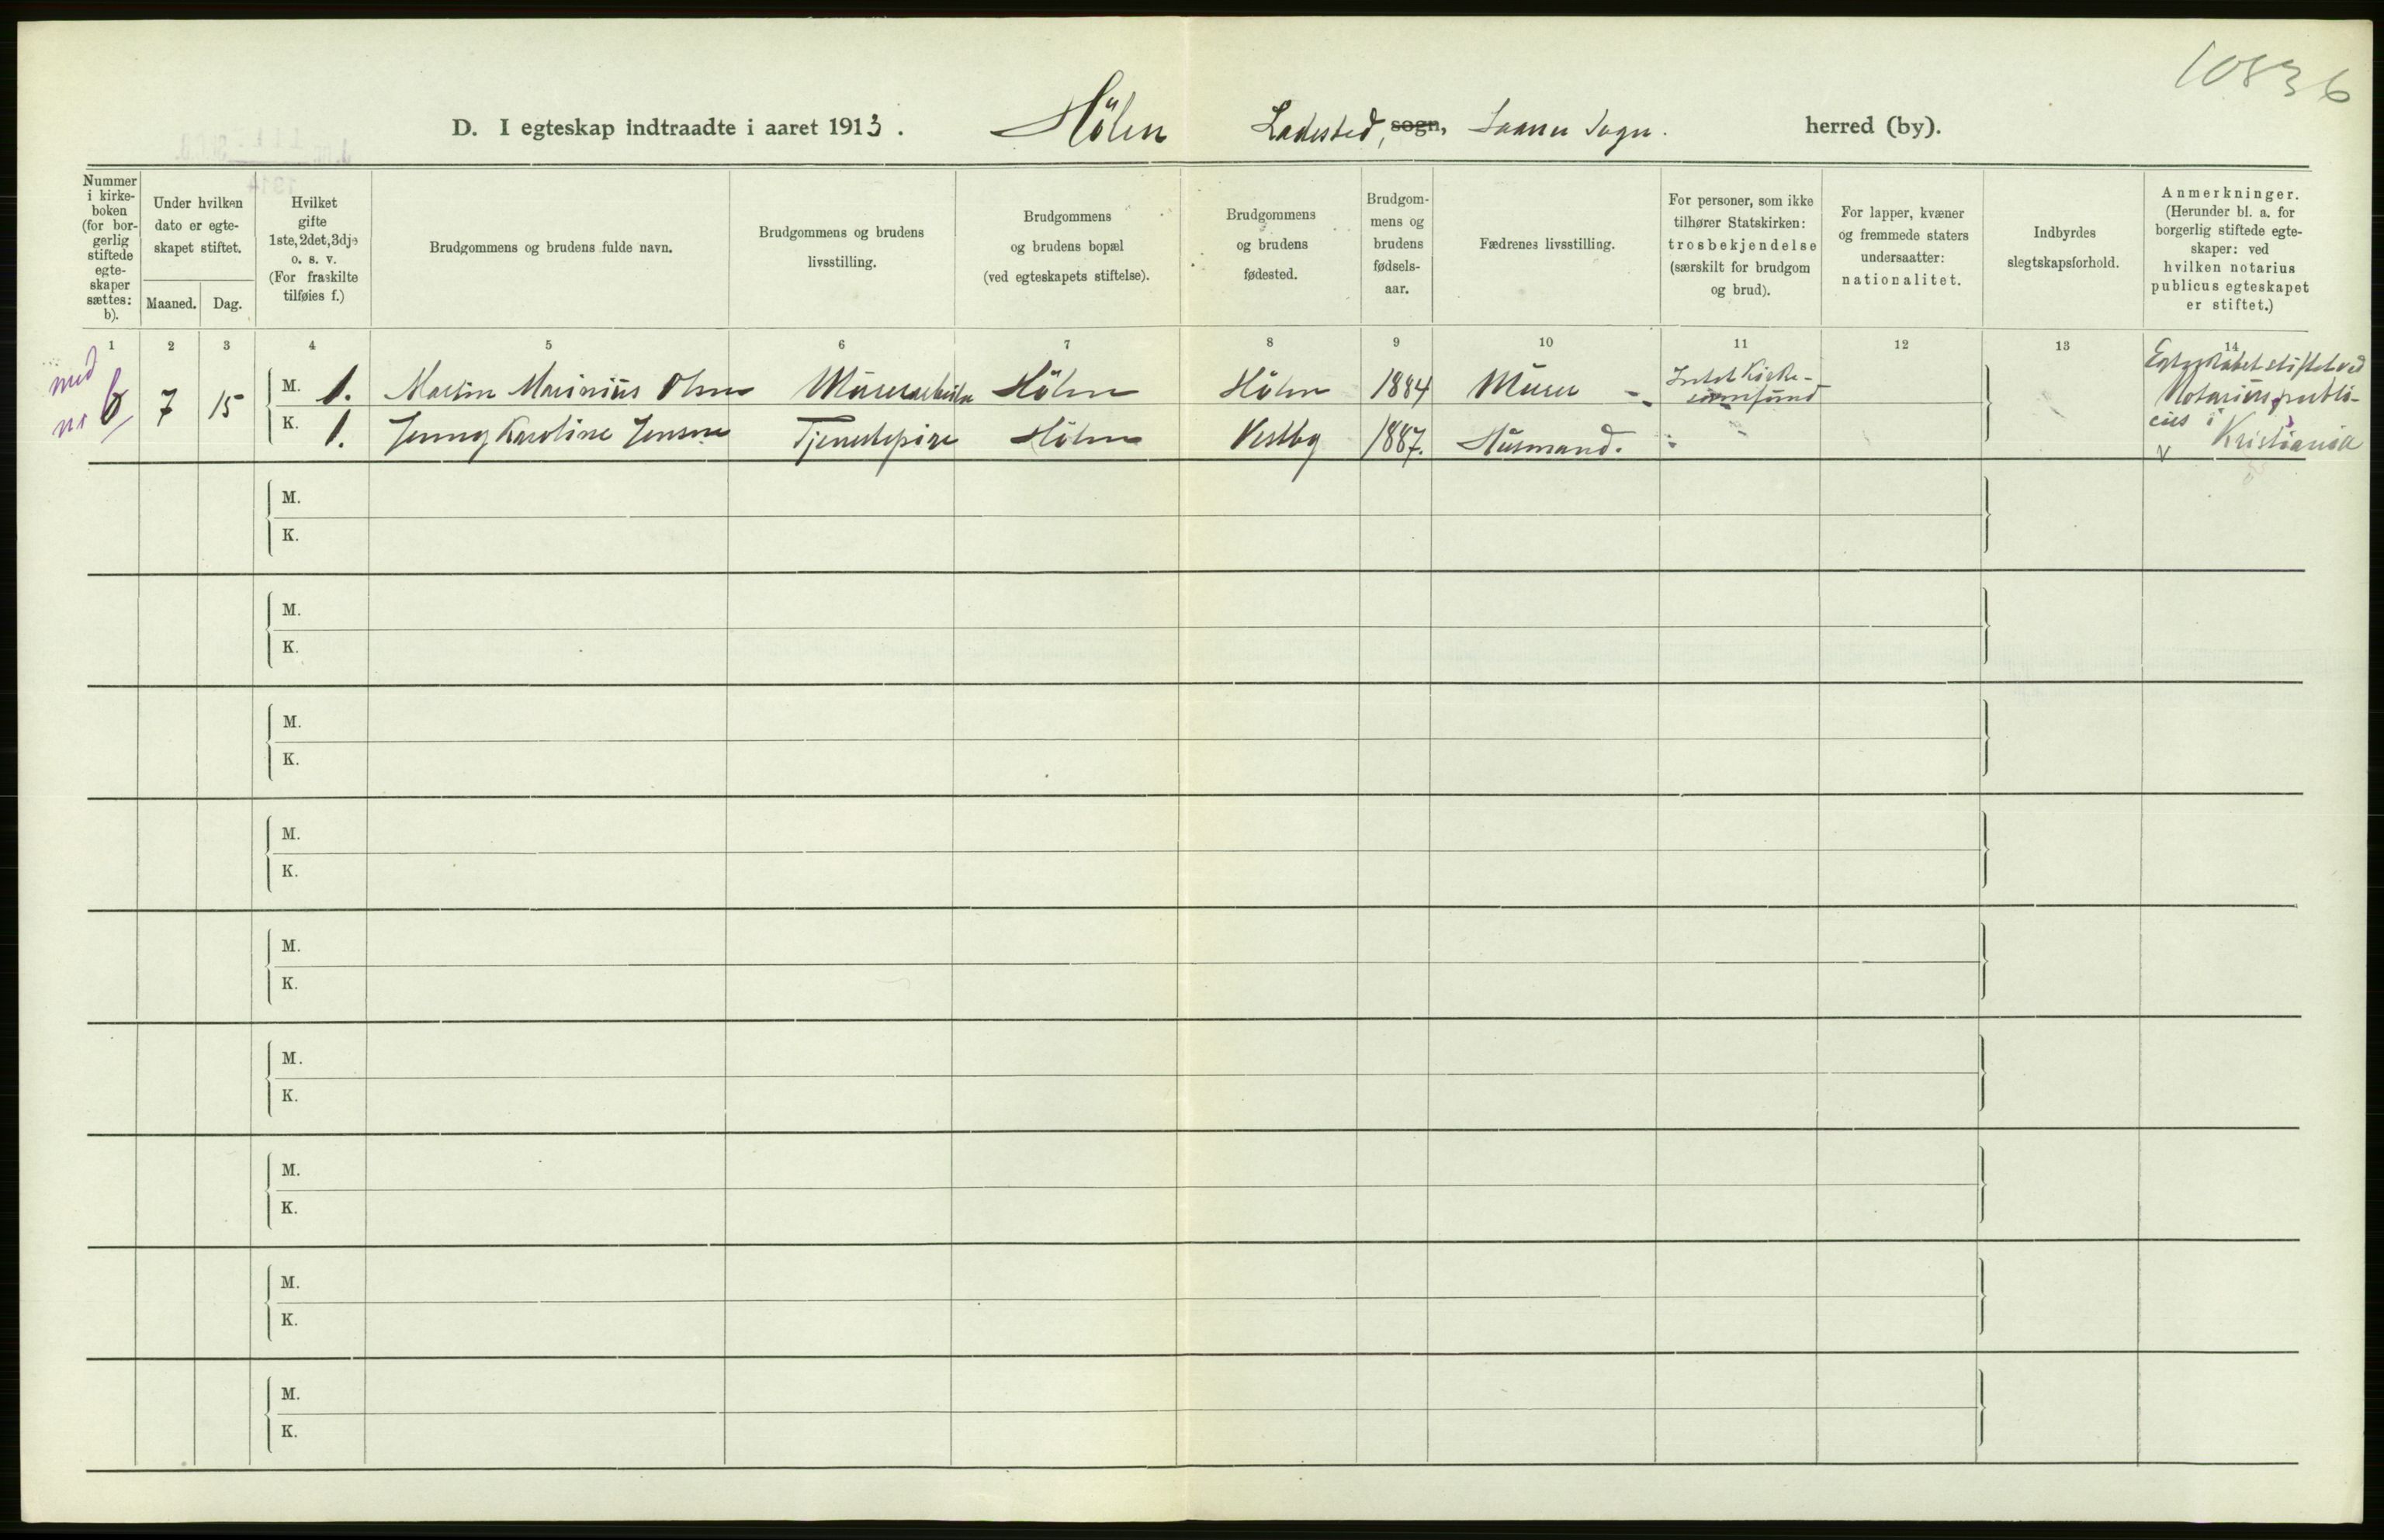 10836
D. I egteskap indtraadte i aaret 1913. Hölen Ladested, sogn, Saaner Sogn. herred (by).
Nummer i kirkeboken (for borgerlig stiftede egteskaper sættes: b).
Under hvilken dato er egteskapet stiftet.
Maaned. Dag.
Hvilket gifte 1ste, 2det, 3dje o. s. v. (For fraskilte tilføies f.)
Brudgommens og brudens fulde navn.
Brudgommens og brudens livsstilling.
Brudgommens og brudens bopæl (ved egteskapets stiftelse).
Brudgommens og brudens fødested.
Brudgommens og brudens fødselsaar.
Fædrenes livsstilling.
For personer, som ikke tilhører Statskirken: trosbekjendelse (særskilt for brudgom og brud).
For lapper, kvæner og fremmede staters undersaatter: nationalitet.
Indbyrdes slegtskapsforhold.
Anmerkninger. (Herunder bl. a. for borgerlig stiftede egteskaper: ved hvilken notarius publicus egteskapet er stiftet.)
1 2 3 4 5 6 7 8 9 10 11 12 13 14
med nr b 7 15
M. 1. Martin Marinius Olsen Murerarbeider Hölen Hölen 1884 Murer Intet Kirkesamfund
K. 1. Jenny Karoline Jensen Tjenestepige Hölen Vestby 1887. Husmand. "
Egteskabet stiftet ved
Notarius publi-
cus i
v Kristiania
M.
K.
M.
K.
M.
K.
M.
K.
M.
K.
M.
K.
M.
K.
M.
K.
M.
K.